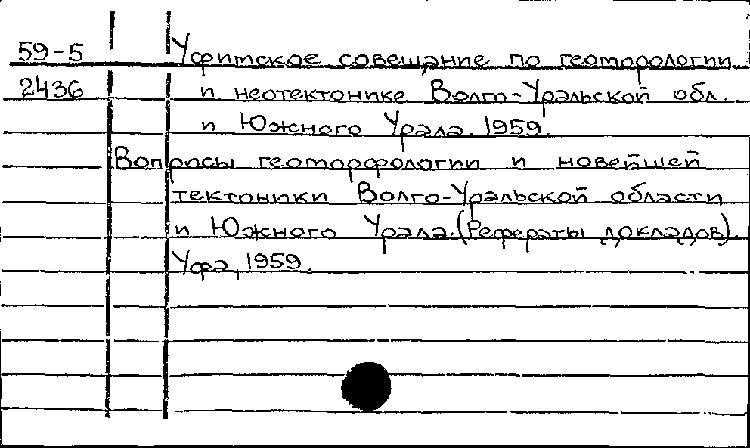 59-5 Уфимское совещание по геоморологии
2436 и неотектонике Волго-Уральской обл.
и Южного Урала. 1959.
Вопросы геоморфологии и новейшей
тектоники Волго-Уральской области
и Южного Урала. (Рефераты докладов).
Уфа, 1959.